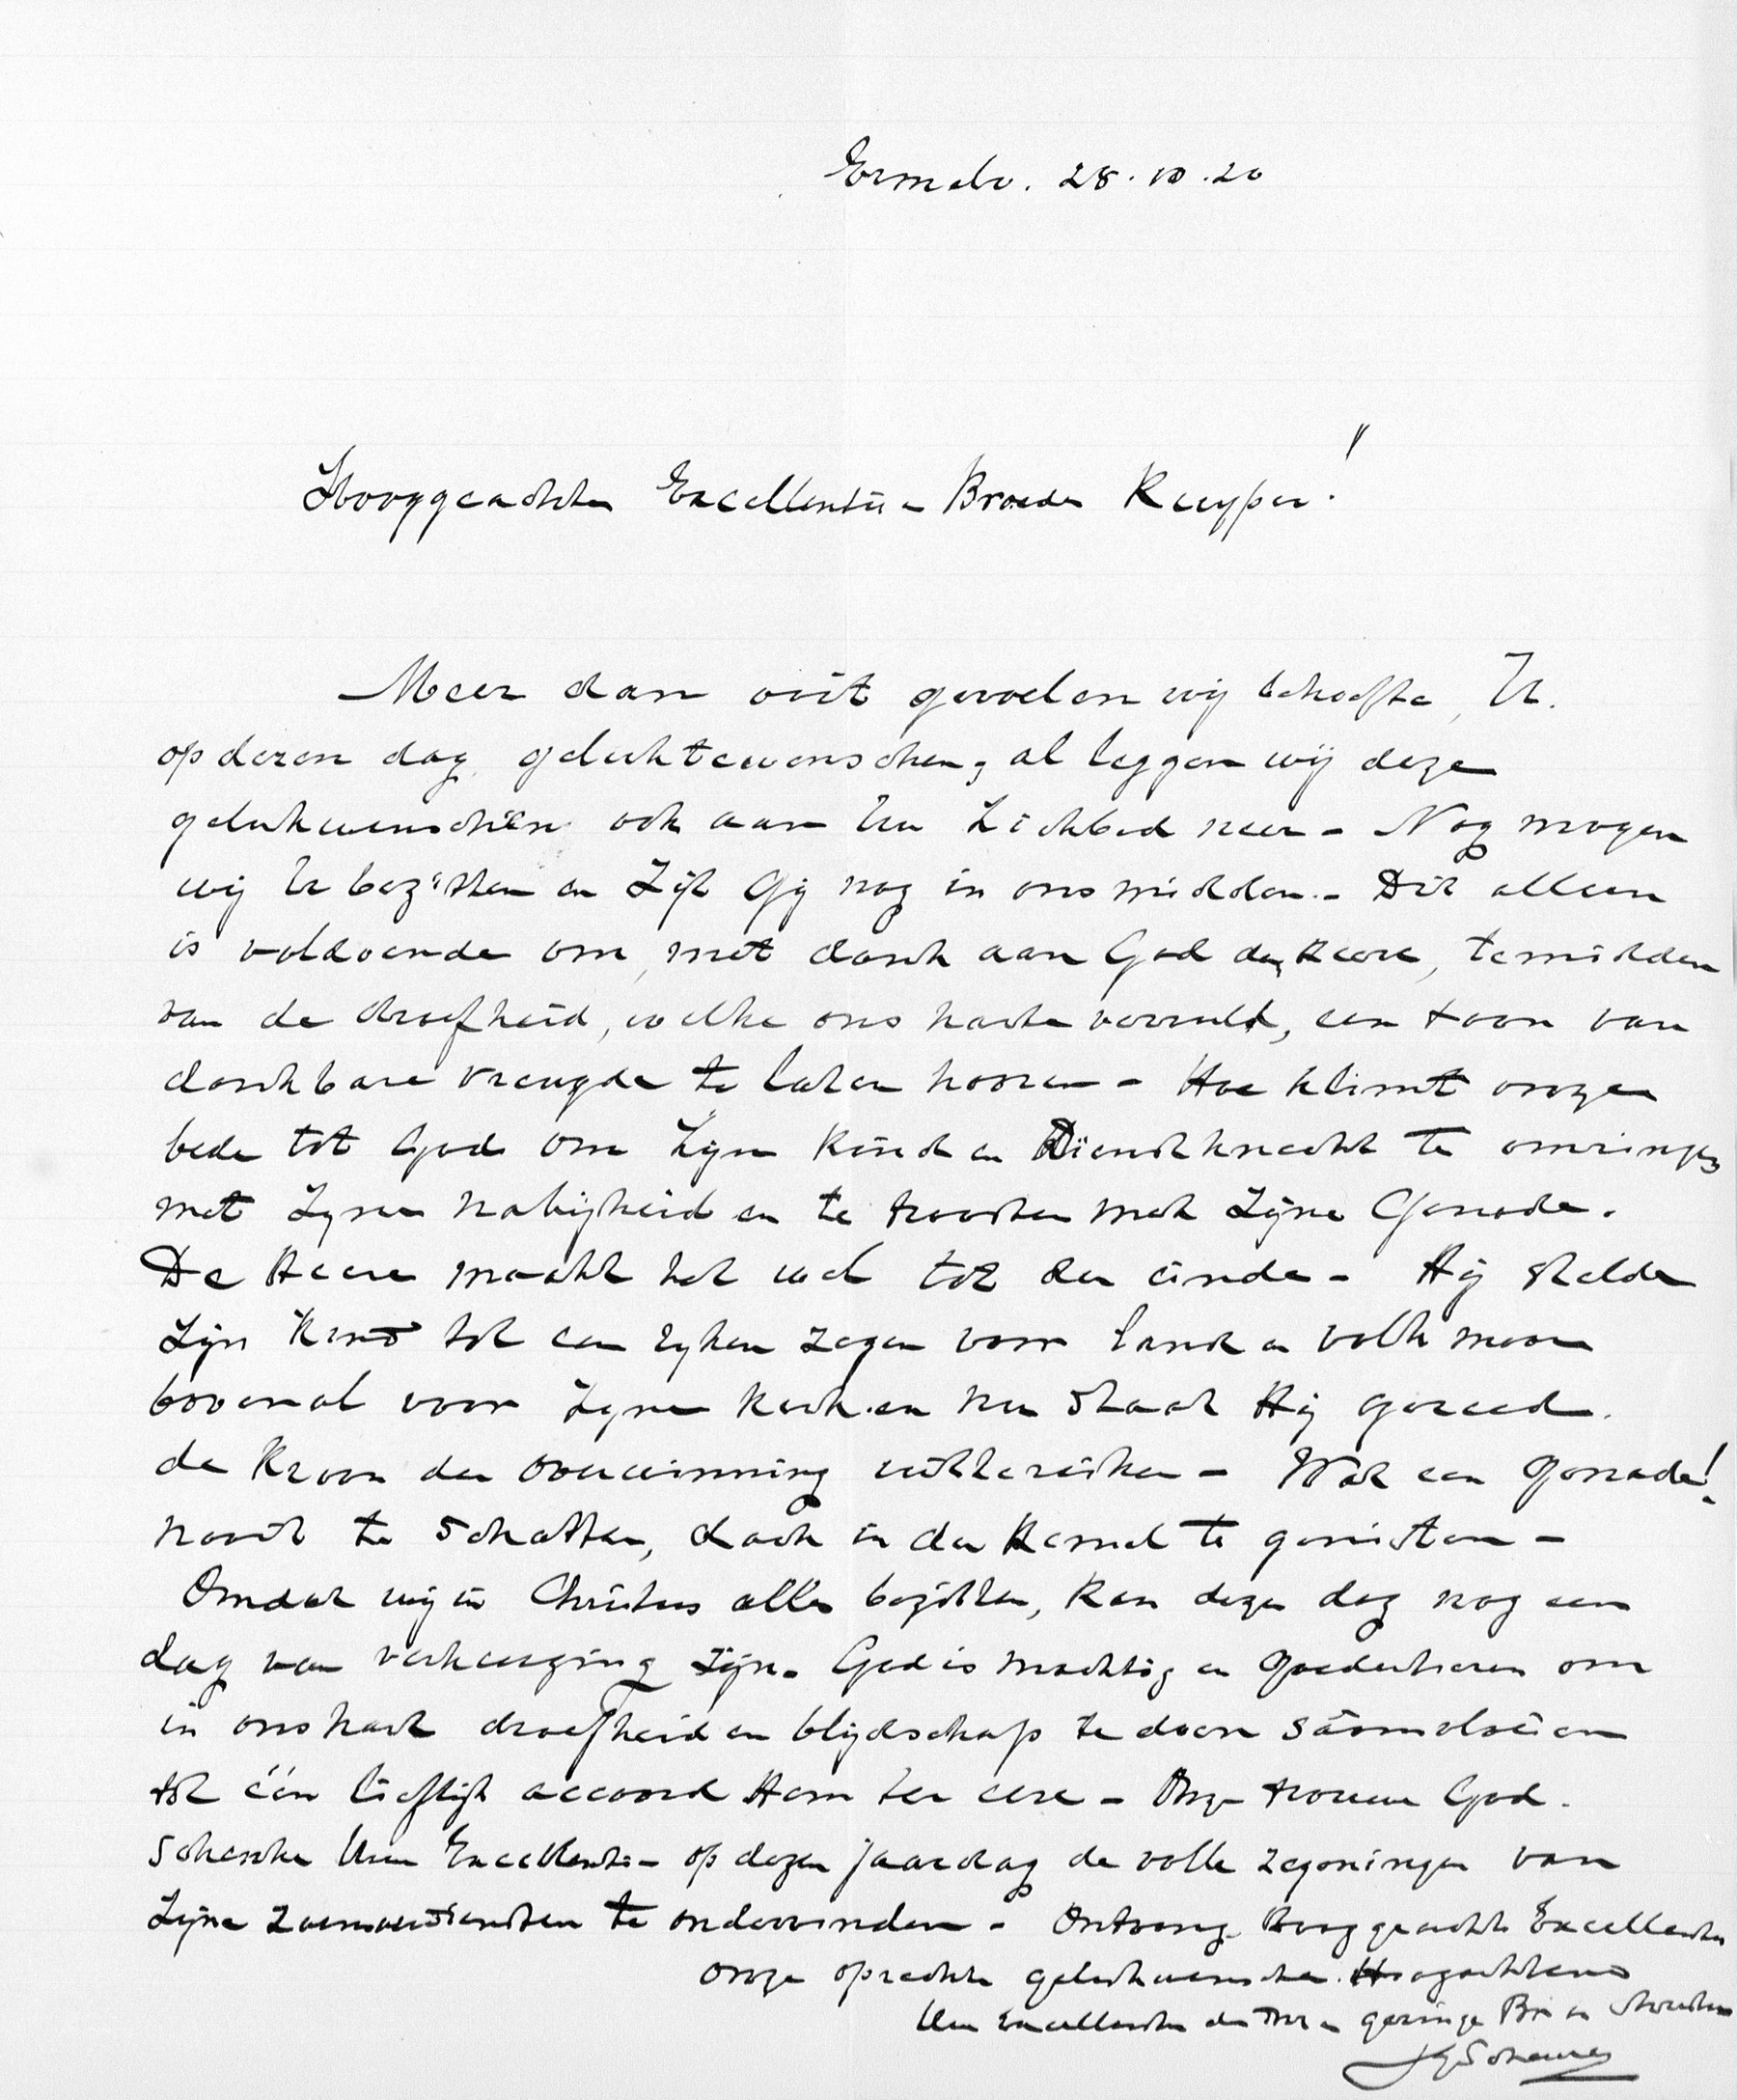 Ermelo. 28.10.20
Hooggeachte Excellentie - Broeder Kuyper!
Meer dan ooit gevoelen wij behoefte, U.
op dezen dag geluk te wenschen, al leggen wij deze
gelukwenschen ook aan Uw Ziekbed neer - Nog mogen
wij U bezitten en Zijt Gij nog in ons midden. - Dit alleen
is voldoende om, met dank aan God den Heere, temidden
van de droefheid, welke ons harte vervult, een toon van
dankbare vreugde te laten hooren - Hoe klimt onze
bede tot God om Zijn Kind en Dienstknecht te omringen
met Zijne Nabijheid en te troosten met Zijne Genade.
De Heere maakt het wel tot den einde - Hij stelde
Zijn Kind tot een rijken zegen voor land en volk maar
bovenal voor Zijne Kerk en nu staat Hij gereed.
de Kroon der overwinning uittereiken - Wat een Genade!
nooit te schatten, doch in den Hemel te genieten -
Omdat wij in Christus alles bezitten, kan deze dag nog een
dag van verheuging zijn. God is machtig en goedertieren om
in ons hart droefheid en blijdschap te doen saamvloeien
tot één lieflijk accoord Hem ter eere - Onze trouwe God.
schenke Uwe Excellentie op dezen jaardag de volle zegeningen van
Zijne zoenverdiensten te ondervinden - Ontvang Hooggeachte Excellentie
onze oprechte gelukwenschen. Hoogachtend
Uwe Excellentie geringe Br en